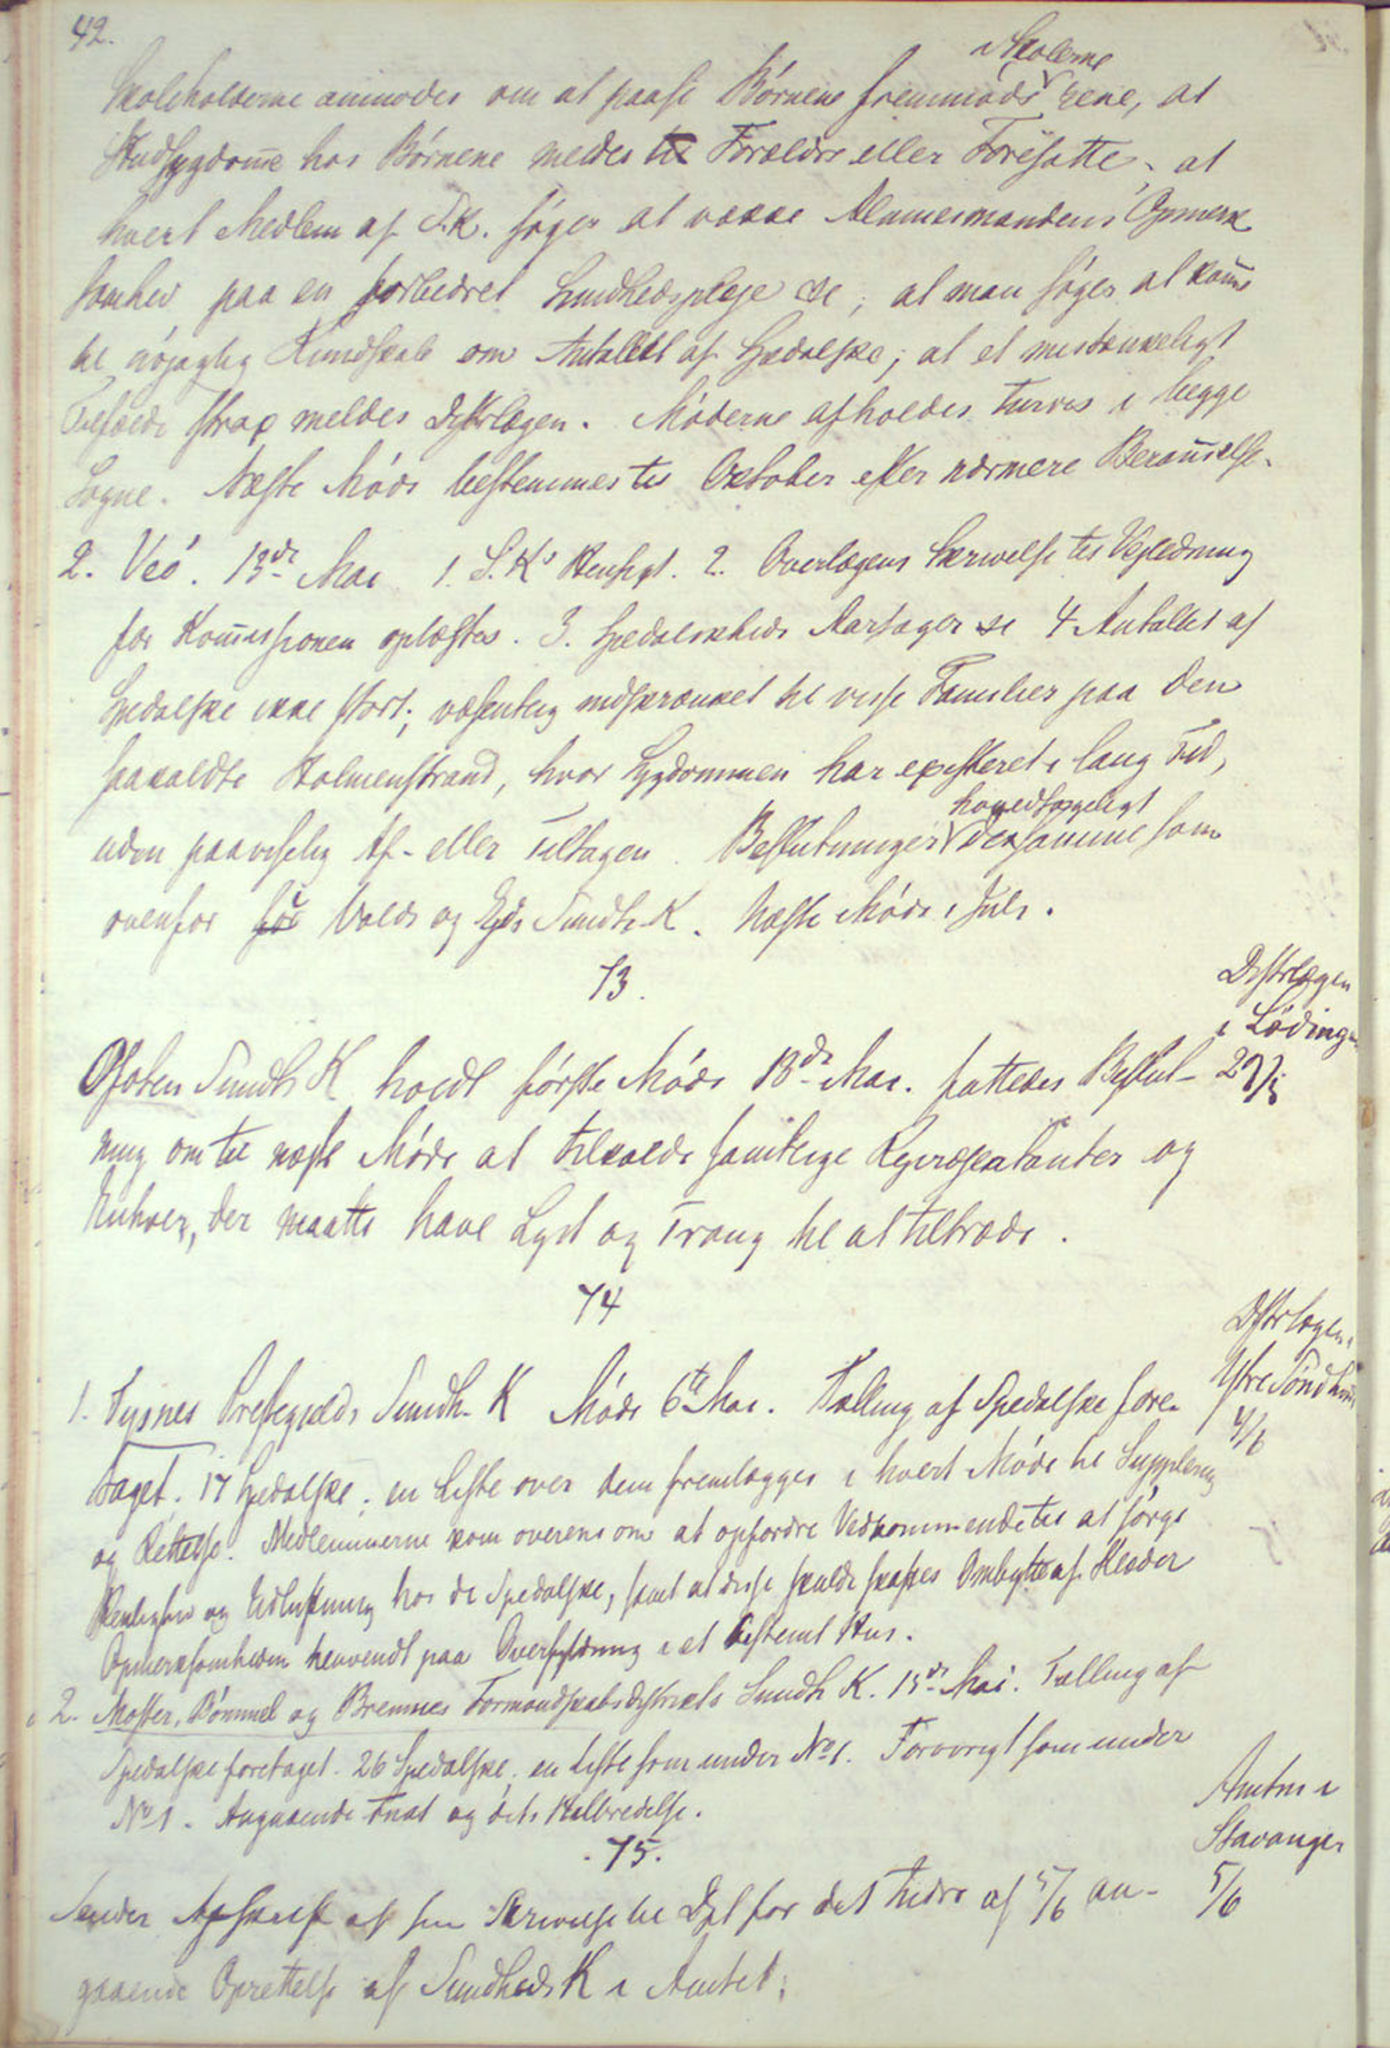 42.
i Skolerne
Skoleholderne anmodes om at paase Børnene fremmøde rene, at
Hudsygdomme hos Børnene meldes til Forældre eller Foresatte, at
hvert Medlem af S.K. søger at vække Almuesmandens Opmærk
somhed paa en forbedret Sundhedspleje &c; at man søger at komme
til nøjagtig Kundskab om Antallet af Spedalske; at et mistænkeligt
Tilfælde strax meldes Distrlægen. Møderne afholdes turvis i begge
Sogne. Næste Møde bestemmes til October efter nærmere Berammelse.
2. Veø. 13de Mai 1. S.K's Hensigt. 2. Overlægens Skrivelse til Vejledning
for Kommissionen oplæstes. 3. Spedalskheds Aarsager &c 4 Antallet af
Spedalske ikke stort; væsentlig indskrænket til visse Familier paa den
saakaldte Holmenstrand, hvor Sygdommen har existeret i lang Tid,
hovedsageligt
uden paaviselig Af- eller Tiltagen. Beslutninger densamme som
ovenfor for Volds og Eids Sundh. K. Næste Møde i Juli.
73.
Distrlægen
i Løding
Ofoten Sundh K holdt første Møde 13de Mai. fattedes Beslut- 29/5
ning om til næste Møde at tilkalde samtlige Repræsentanter og
Enhver, der maatte have Lyst og Trang til at tiltræde.
74
Distrlægen i
Ytre Søndh
4/6
1. Tysnes Præstegjelds Sundh. K Møde 6te Mai. Tælling af Spedalske fore-
taget. 17 Spedalske; en Liste over dem fremlægges i hvert Møde til Supplering
og Rettelse. Medlemmerne kom overens om at opfordre Vedkommende til at sørge
Renlighed og Udluftning hos de Spedalske, samt at disse skulde skaffes Ombytte af Klæder
Opmærksomheden henvendt paa Overfyldning i et bestemt Hus.
2. Moster, Bømmel og Bremnes Formandskabsdistrikts Sundh K. 15de Mai. Tælling af
Spedalske foretaget. 26 Spedalske; en Liste som under No 1. Forøvrigt som under
No 1. Angaaende Fnat og dets Helbredelse.
75.
Amtm i
Stavanger
5/6
Sender Afskrift af sin Skrivelse til Dpt for det Indre af 5/6 an-
gaaende Oprettelse af Sundheds K i Amtet.